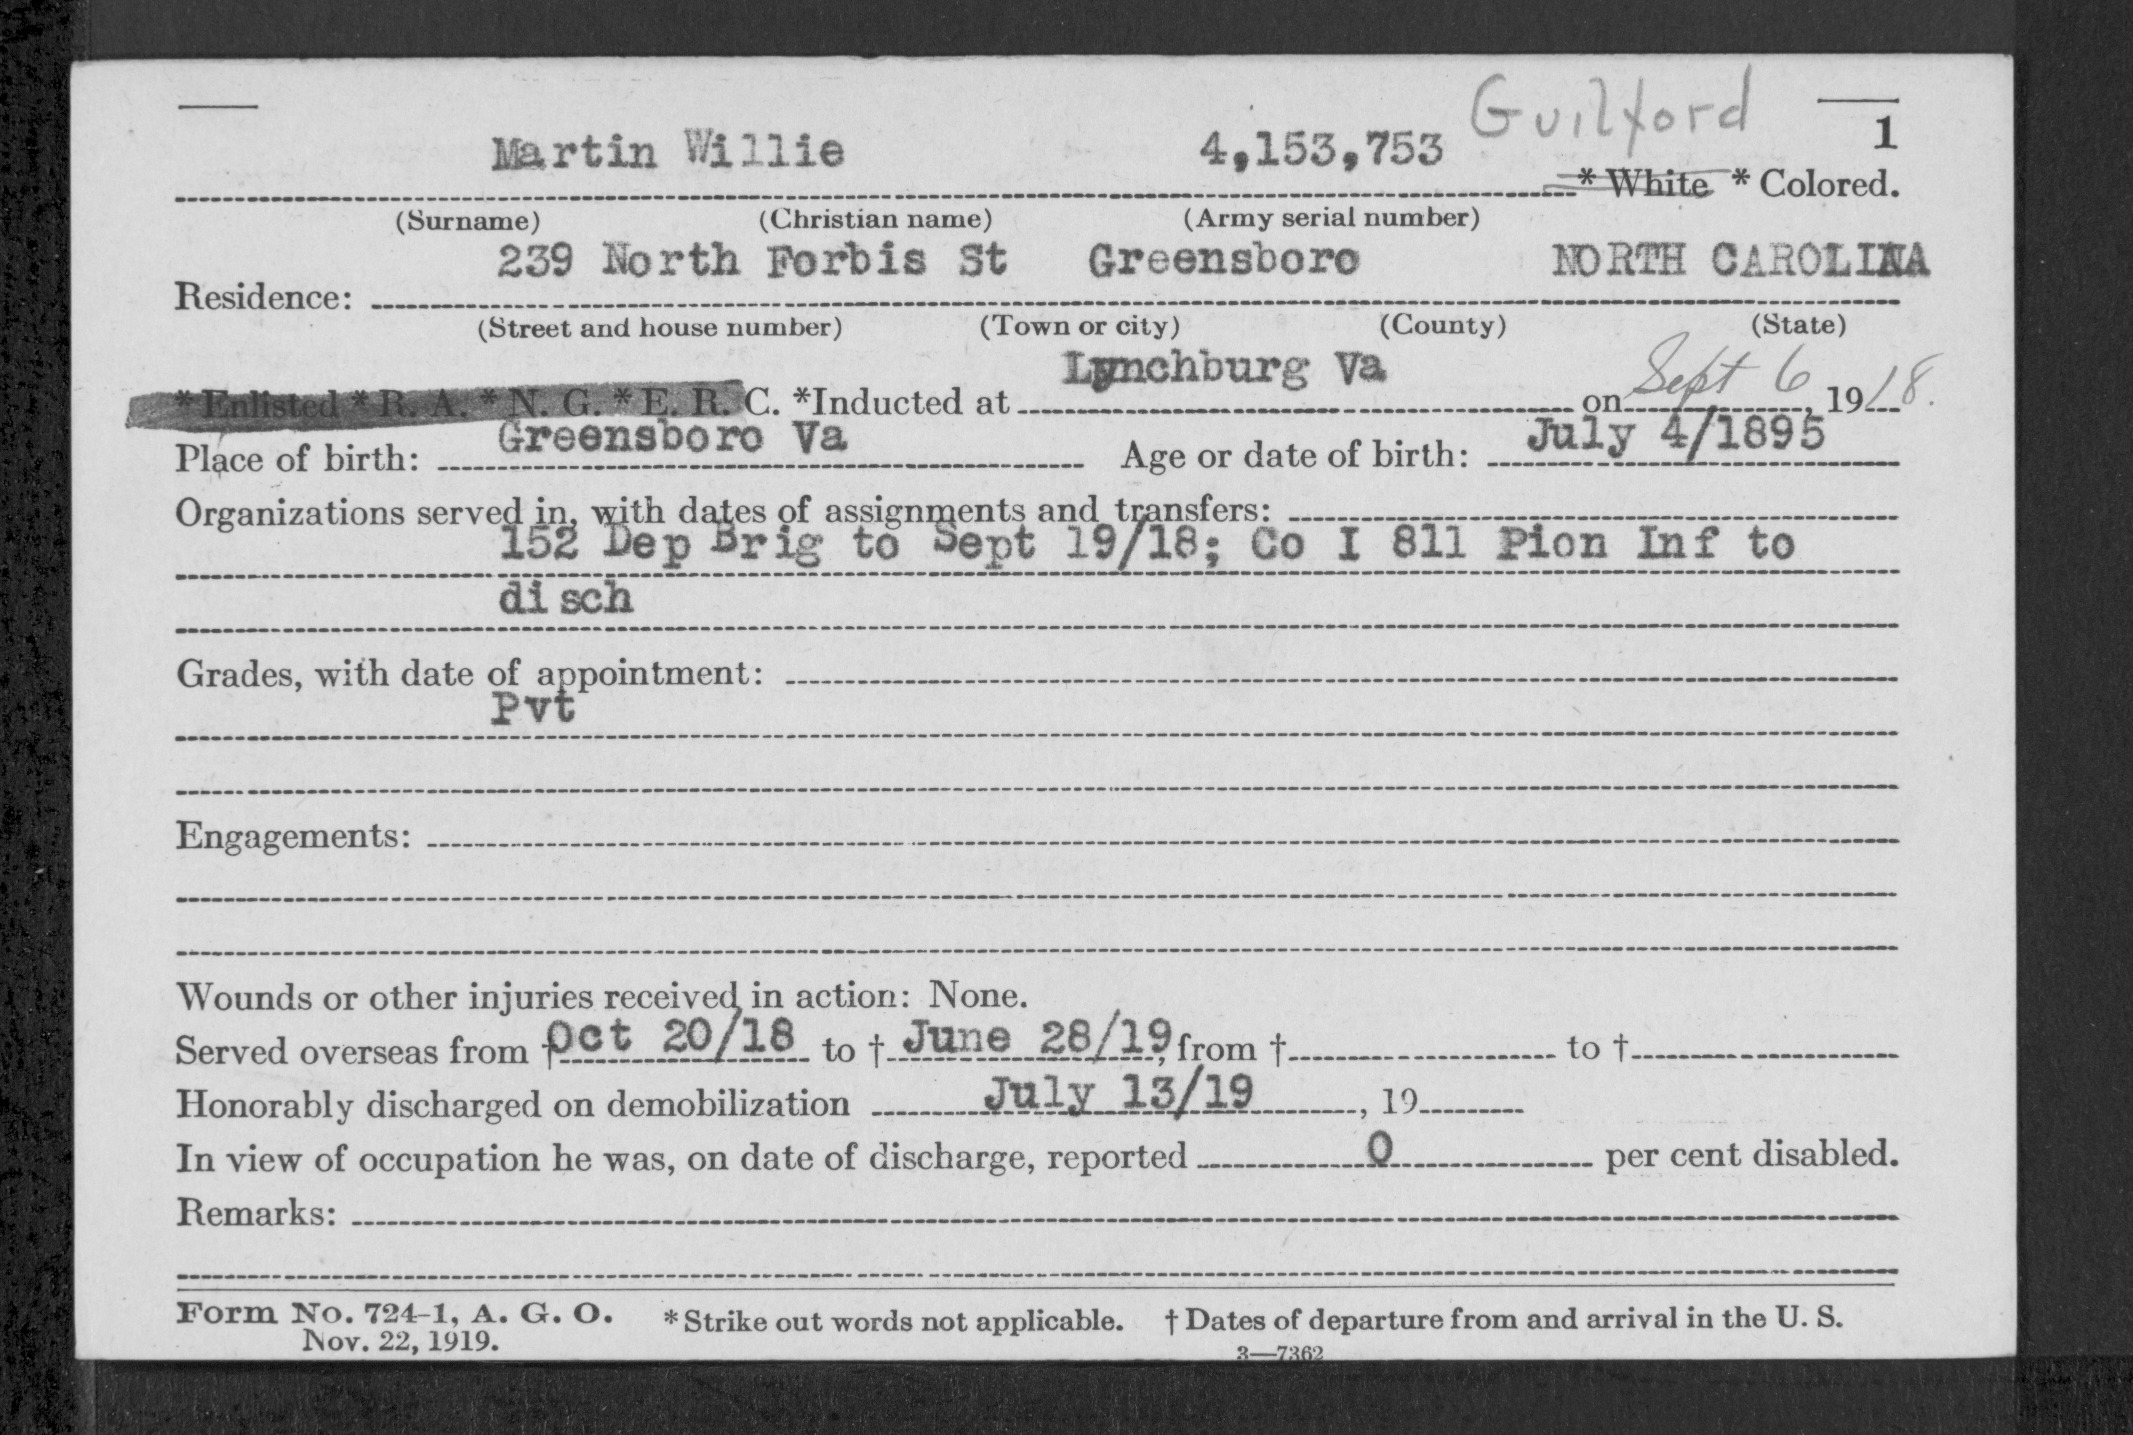 Guilford
1
Martin Willie 4,153,753 * White * Colored.
(Surname) (Christian name) (Army serial number)
239 North Forbis St Greensboro NORTH CAROLINA
Residence:
(Street and house number) (Town or city) (County) (State)
* Enlisted * R. A. * N. G. * E. R. C. *Inducted at Lynchburg Va on Sept 6, 1918.
Place of birth: Greensboro Va Age or date of birth: July 4/1895
Organizations served in, with dates of assignments and transfers:
152 Dep Brig to Sept 19/18; Co I 811 Pion Inf to
disch
Grades, with date of appointment:
Pvt
Engagements:
Wounds or other injuries received in action: None.
Served overseas from † Oct 20/18 to † June 28/19, from † to †
Honorably discharged on demobilization July 13/19, 19
In view of occupation he was, on date of discharge, reported 0 per cent disabled.
Remarks:
Form No. 724-1, A. G. O. * Strike out words not applicable. † Dates of departure from and arrival in the U. S.
Nov. 22, 1919. 3—7362